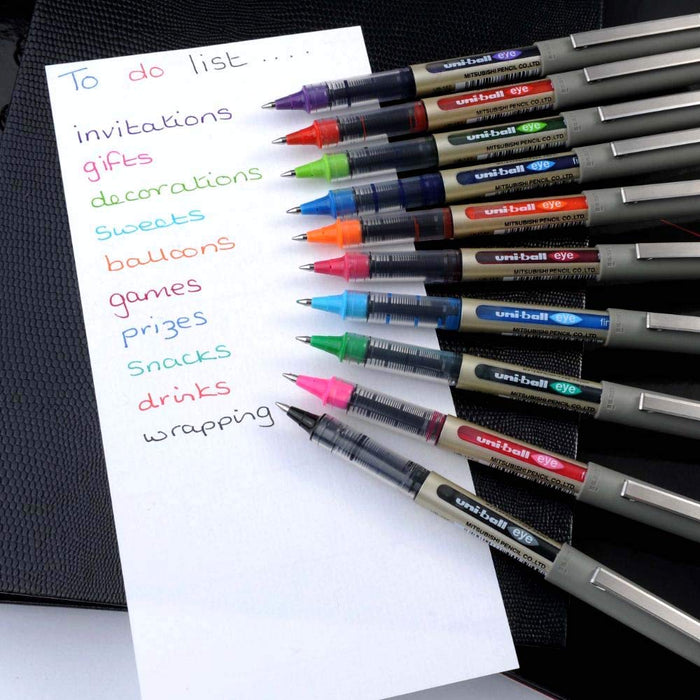 To do list ....
invitations
gifts
decorations
sweets
balloons
games
prizes
snacks
drinks
wrapping
uni-ball eye
MITSUBISHI PENCIL CO.LTD.
uni-ball eye
MITSUBISHI PENCIL CO.LTD.
uni-ball eye
MITSUBISHI PENCIL CO.LTD.
uni-ball eye
MITSUBISHI PENCIL CO.LTD.
uni-ball eye
MITSUBISHI PENCIL CO.LTD.
uni-ball eye
MITSUBISHI PENCIL CO.LTD.
uni-ball eye
MITSUBISHI PENCIL CO.LTD.
uni-ball eye
MITSUBISHI PENCIL CO.LTD.
uni-ball eye
MITSUBISHI PENCIL CO.LTD.
uni-ball eye
MITSUBISHI PENCIL CO.LTD.